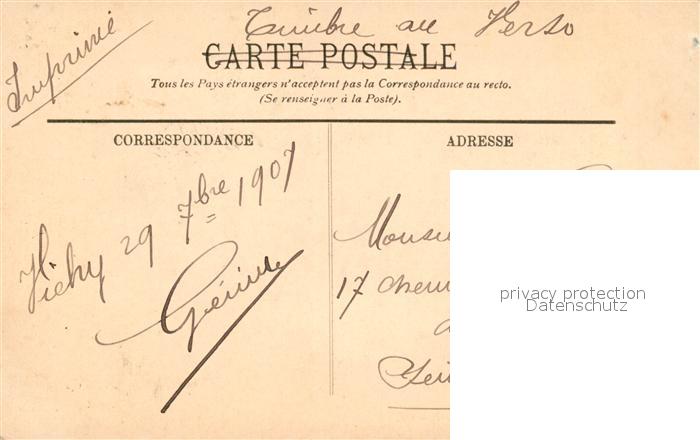 Timbre au Verso
Imprimé
CARTE POSTALE
Tous les Pays étrangers n'acceptent pas la Correspondance au recto.
(Se renseigner à la Poste).
CORRESPONDANCE
ADRESSE
Vichy 29 7bre 1907
17
privacy protection
Datenschutz